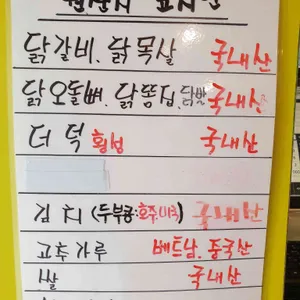 원산지 표시판
닭갈비. 닭목살 국내산
닭오돌뼈. 닭똥집. 닭발 국내산
더덕 횡성 국내산
김치 (두부콩:호주미국) 국내산
고추가루 베트남. 중국산
쌀 국내산